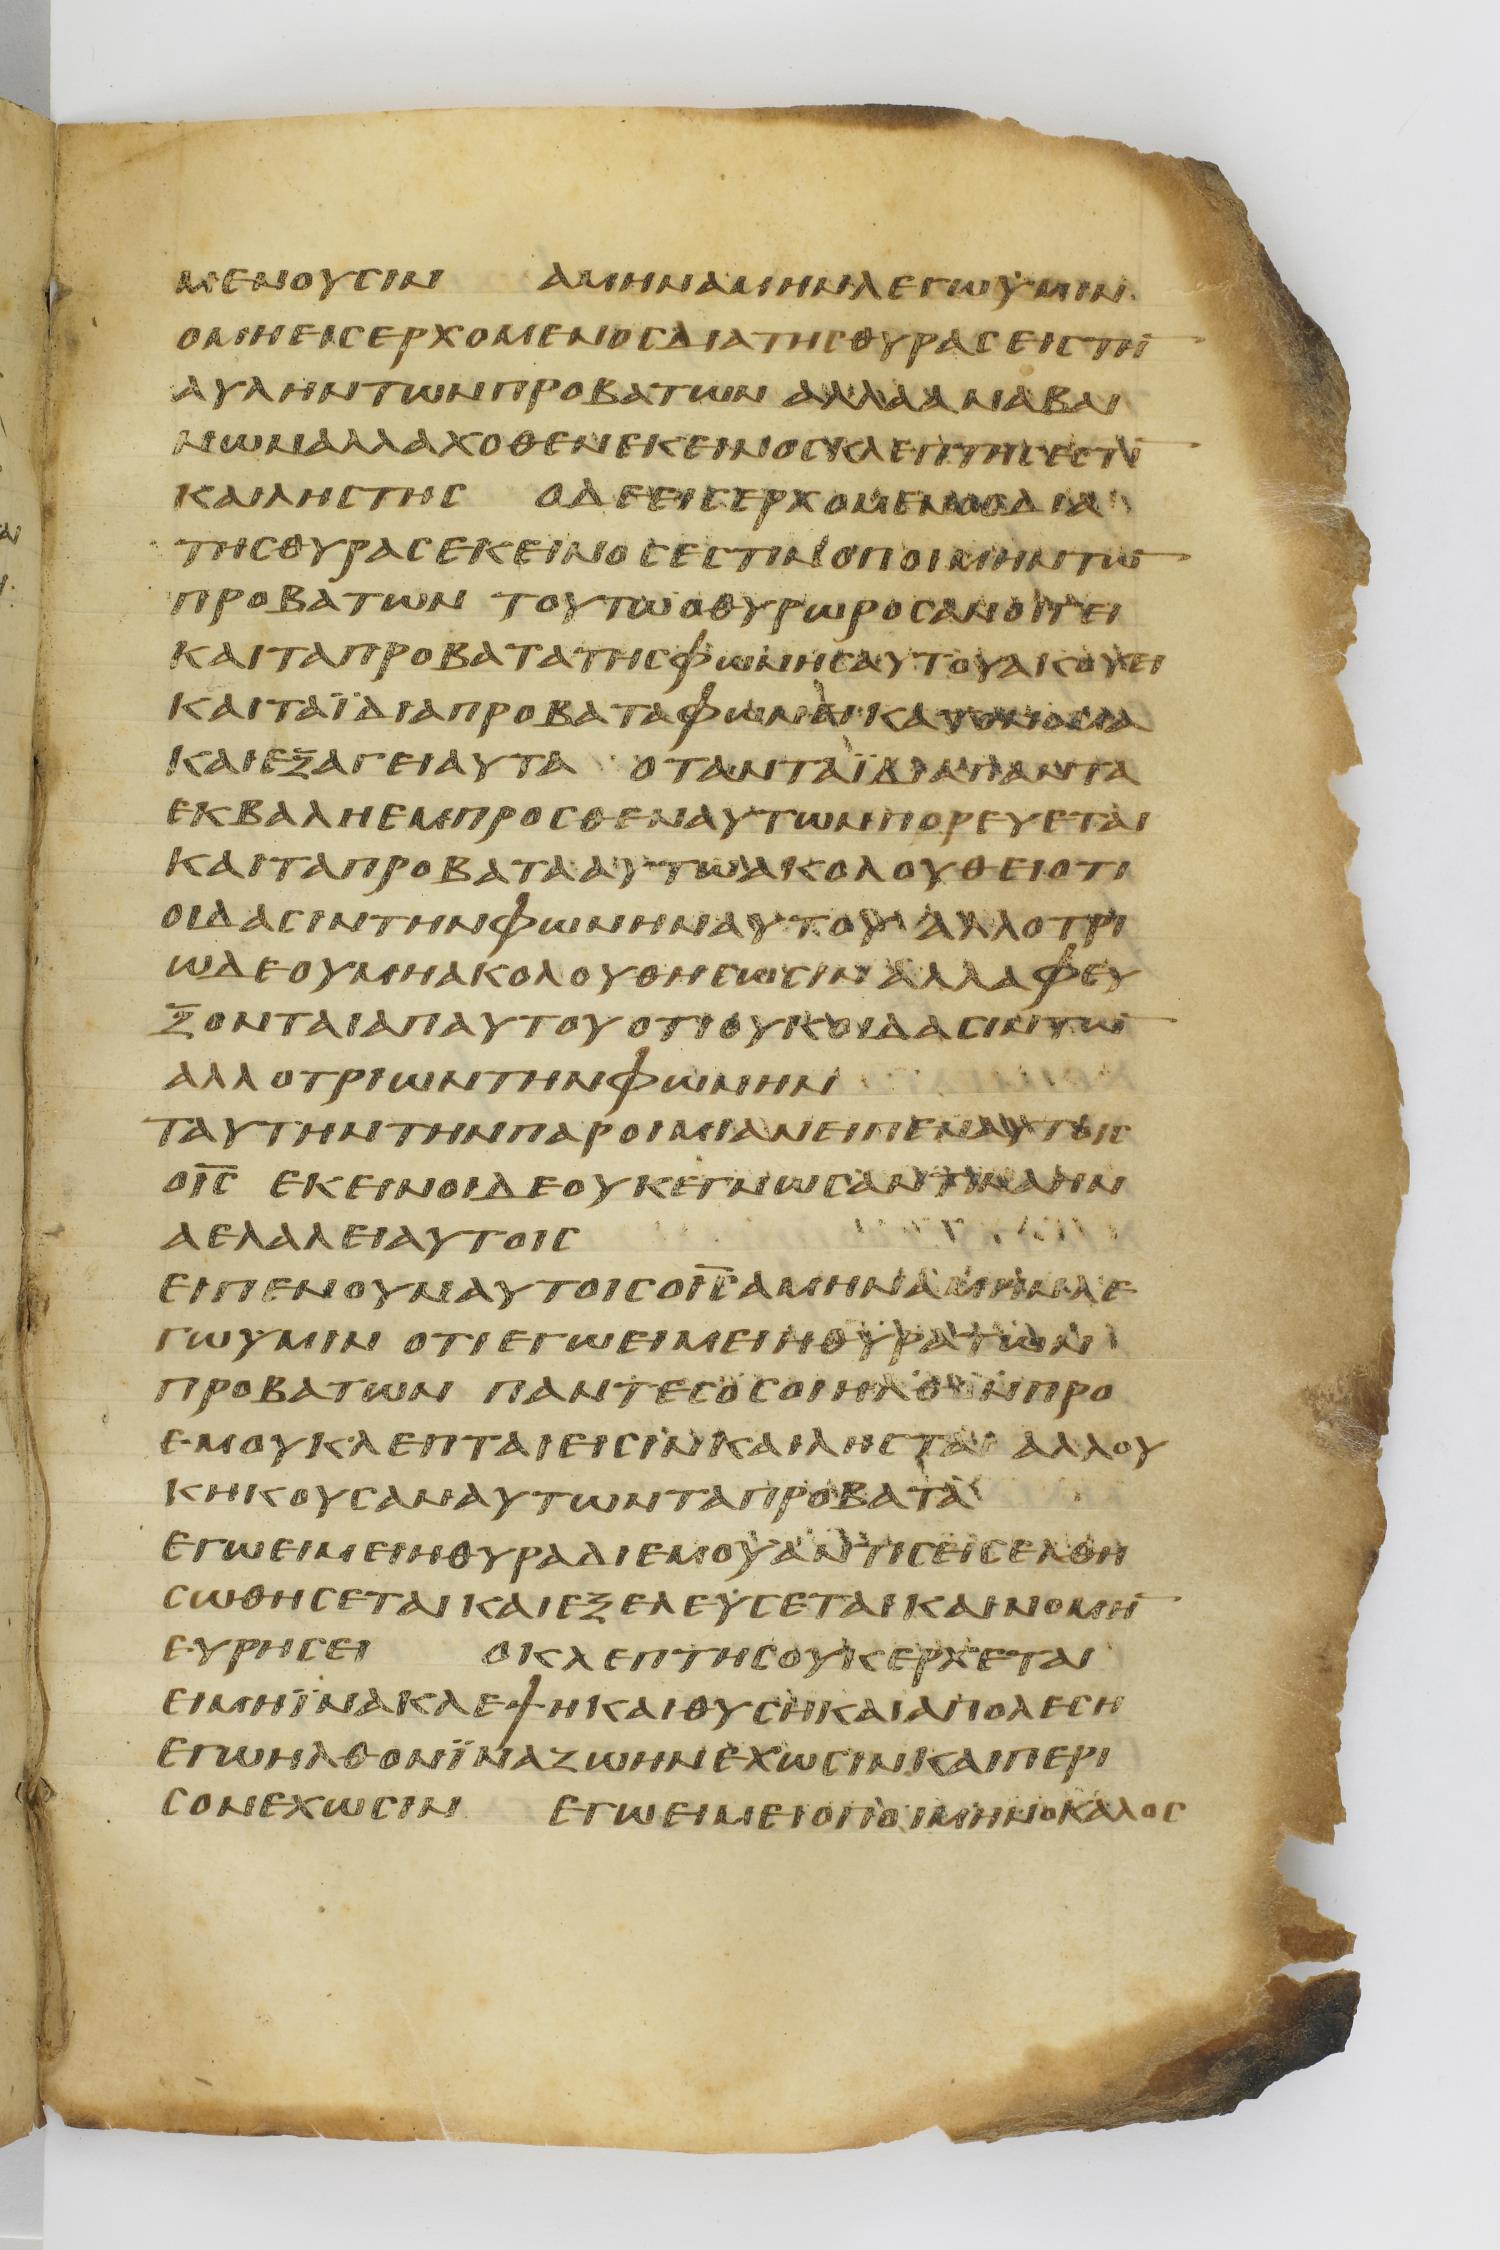 ΜΕΝΟΥСΙΝ ΑΜΗΝΑΜΗΝΛΕΓωΫΜΙΝ
ΟΜΗΕΙСΕΡΧΟΜΕΝΟСΔΙΑΤΗСΘΥΡΑСΕΙСΤΗ̅
ΑΥΛΗΝΤωΝΠΡΟΒΑΤωΝ ΑΛΛΑΑΝΑΒΑΙ
ΝωΝΑΛΛΑΧΟΘΕΝΕΚΕΙΝΟСΚΛΕΠΤΗСΕСΤΙ̅
ΚΑΙΛΗСΤΗС ΟΔΕΕΙСΕΡΧΟΜΕΝΟСΔΙΑ
ΤΗСΘΥΡΑСΕΚΕΙΝΟСΕСΤΙΝΟΠΟΙΜΗΝΤω̅
ΠΡΟΒΑΤωΝ ΤΟΥΤωΟΘΥΡωΡΟСΑΝΟΙΓΕΙ
ΚΑΙΤΑΠΡΟΒΑΤΑΤΗСΦωΝΗСΑΥΤΟΥΑΚΟΥΕΙ
ΚΑΙΤΑΪΔΙΑΠΡΟΒΑΤΑΦωΝΕΙ
ΚΑΙΕΞΑΓΕΙΑΥΤΑ ΟΤΑΝΤΑΪΔΙΑΠΑΝΤΑ
ΕΚΒΑΛΗΕΜΠΡΟСΘΕΝΑΥΤωΝΠΟΡΕΥΕΤΑΙ
ΚΑΙΤΑΠΡΟΒΑΤΑΑΥΤωΑΚΟΛΟΥΘΕΙΟΤΙ
ΟΙΔΑСΙΝΤΗΝΦωΝΗΝΑΥΤΟΥ ΑΛΛΟΤΡΙ
ωΔΕΟΥΜΗΑΚΟΛΟΥΘΗСωСΙΝ ΑΛΛΑΦΕΥ
ΞΟΝΤΑΙΑΠΑΥΤΟΥΟΤΙΟΥΚΟΙΔΑСΙΝΤω̅
ΑΛΛΟΤΡΙωΝΤΗΝΦωΝΗΝ
ΤΑΥΤΗΝΤΗΝΠΑΡΟΙΜΙΑΝΕΙΠΕΝΑΥΤΟΙС
ΟΙ̅С̅ ΕΚΕΙΝΟΙΔΕΟΥΚΕΓΝωСΑΝΤΙΝΑΗΝ
ΑΕΛΑΛΕΙΑΥΤΟΙС
ΕΙΠΕΝΟΥΝΑΥΤΟΙСΟΙ̅С̅ΑΜΗΝΑΜΗΝΛΕ
ΓωΥΜΙΝ ΟΤΙΕΓωΕΙΜΕΙΗΘΥΡΑΤωΝ
ΠΡΟΒΑΤωΝ ΠΑΝΤΕСΟСΟΙΗΛΘΟΝΠΡΟ
ΕΜΟΥΚΛΕΠΤΑΙΕΙСΙΝΚΑΙΛΗСΤΑΙ ΑΛΛΟΥ
ΚΗΚΟΥСΑΝΑΥΤωΝΤΑΠΡΟΒΑΤΑ
ΕΓωΕΙΜΕΙΗΘΥΡΑΔΙΕΜΟΥΑΝΤΙСΕΙСΕΛΘΗ
СωΘΗСΕΤΑΙΚΑΙΕΞΕΛΕΥСΕΤΑΙΚΑΙΝΟΜΗ̅
ΕΥΡΗСΕΙ ΟΚΛΕΠΤΗСΟΥΚΕΡΧΕΤΑΙ
ΕΙΜΗΪΝΑΚΛΕΨΗΚΑΙΘΥСΗΚΑΙΑΠΟΛΕСΗ
ΕΓωΗΛΘΟΝΪΝΑΖωΗΝΕΧωСΙΝΚΑΙΠΕΡΙ
СΟΝΕΧωСΙΝ ΕΓωΕΙΜΕΙΟΠΟΙΜΗΝΟΚΑΛΟС